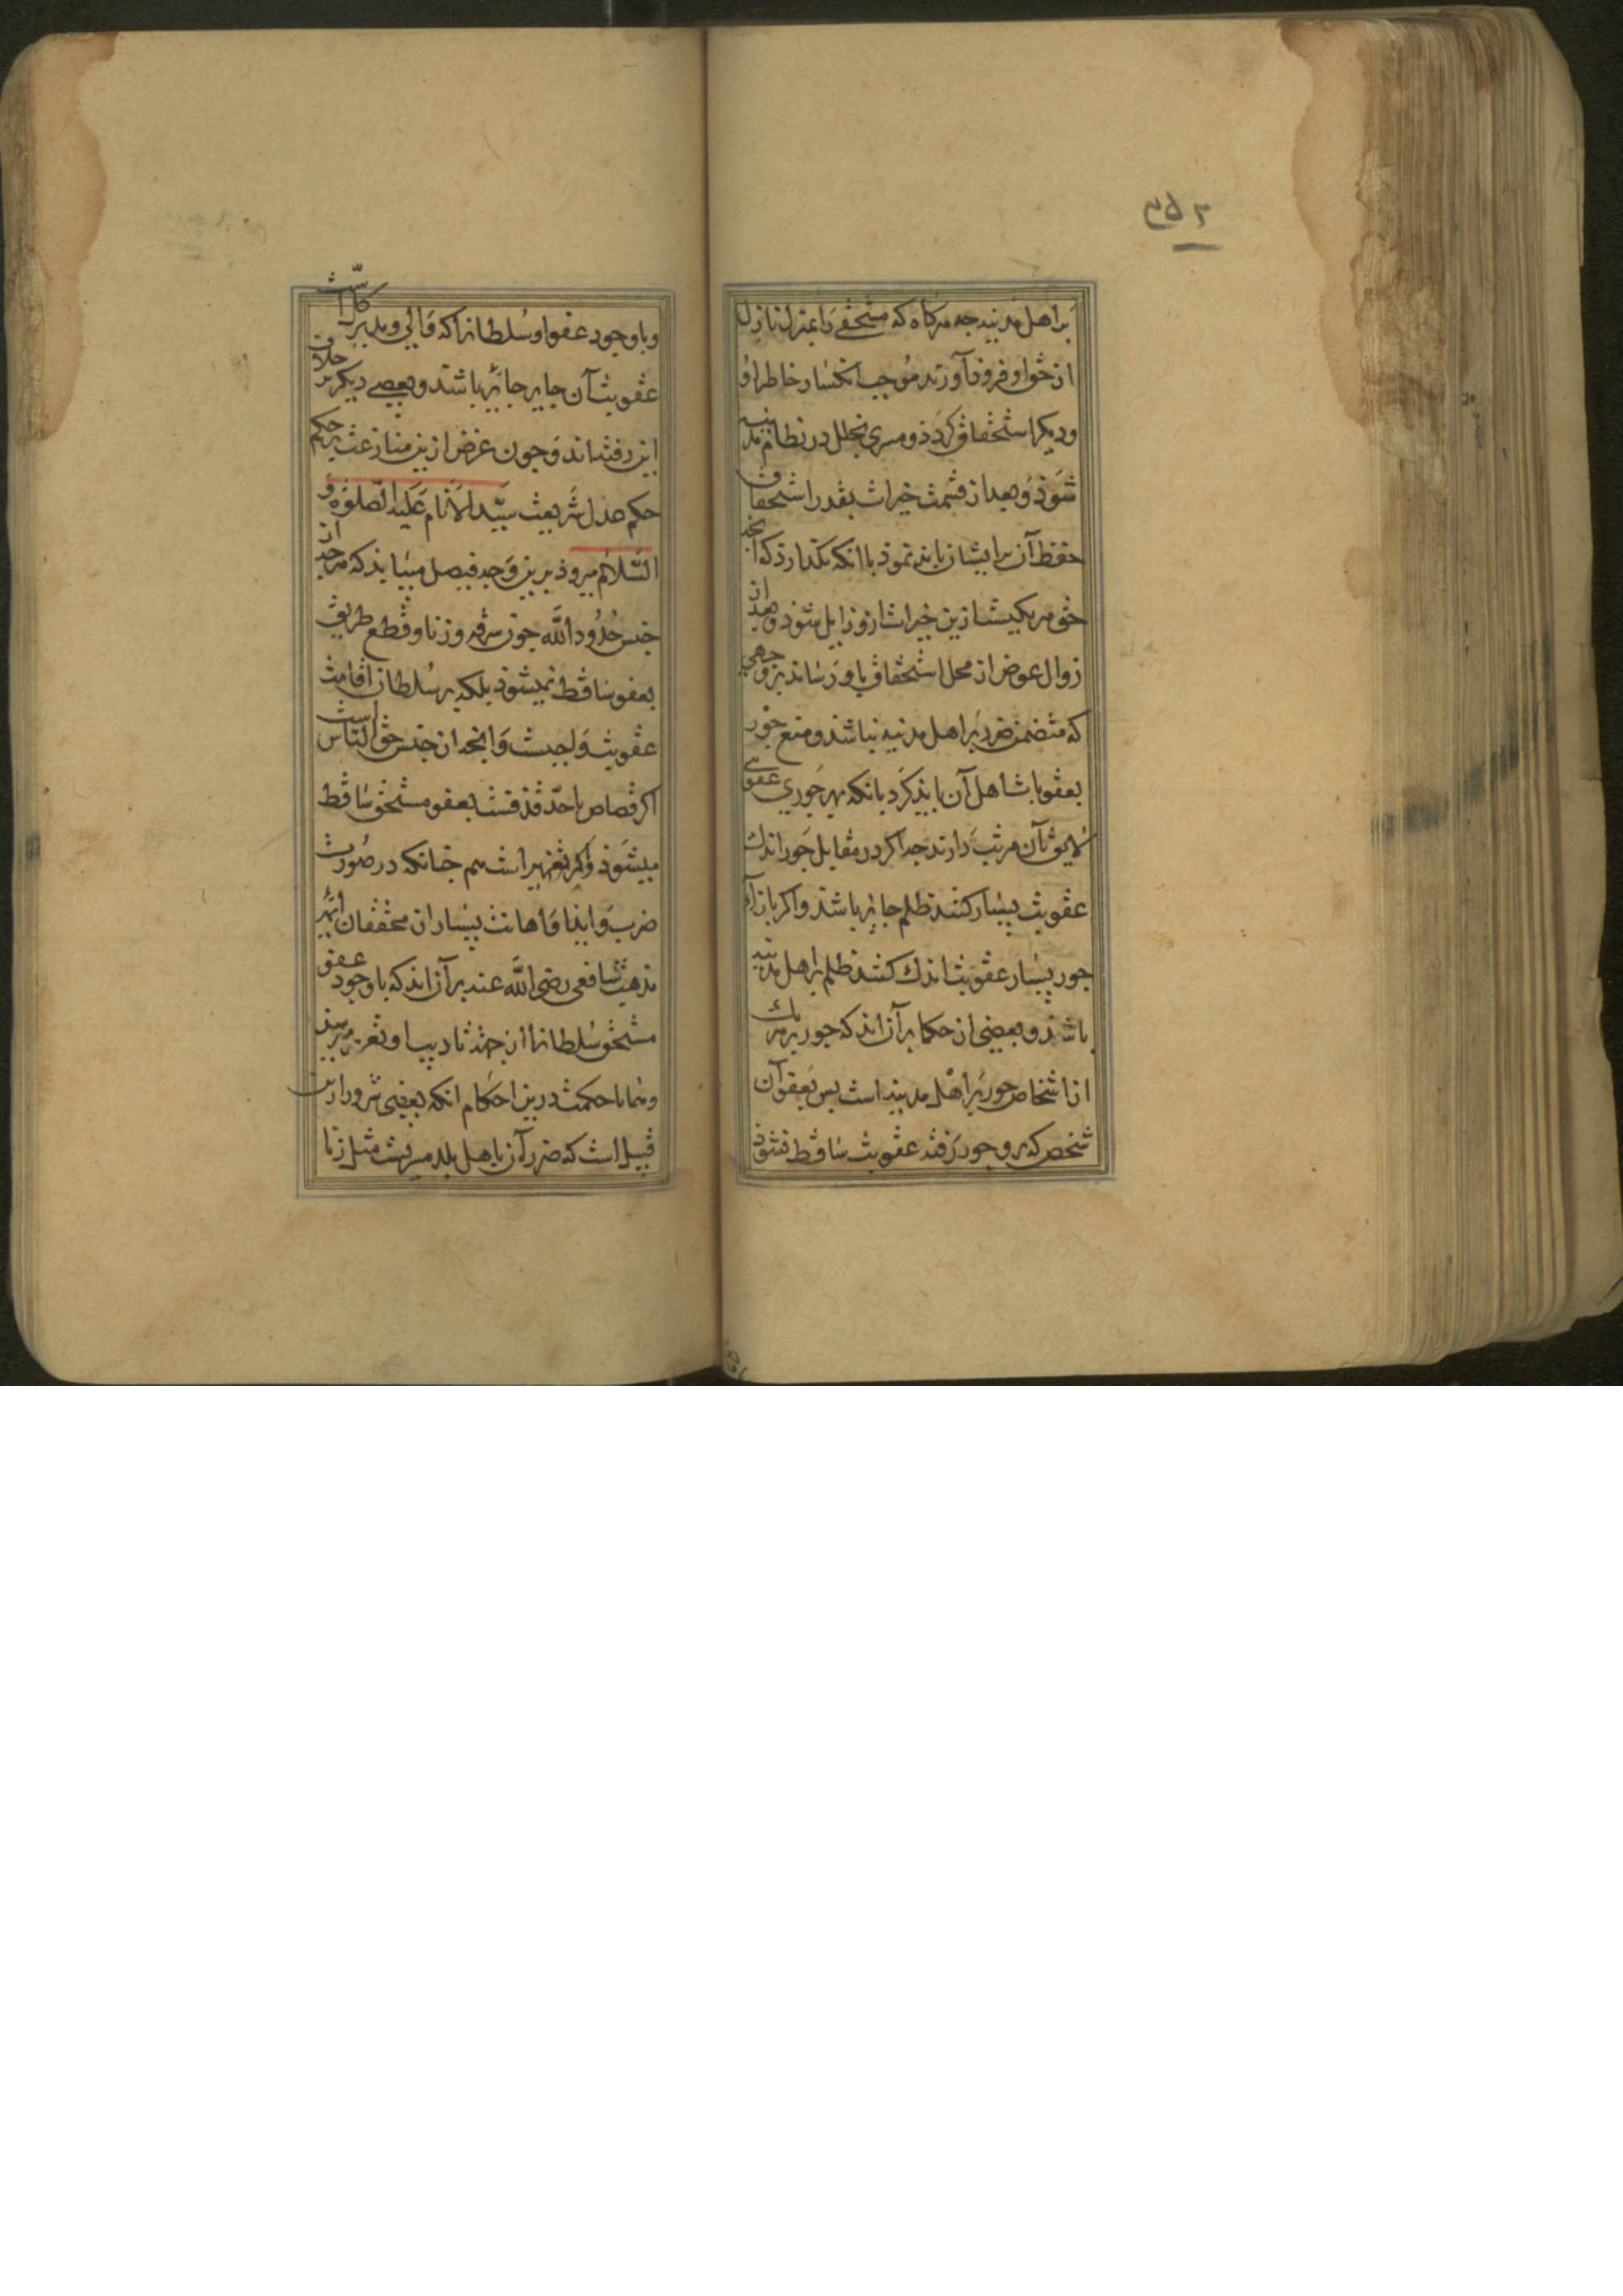 ۲۵۳
بر اهل مدینه چه هرگاه که مستحقی را بمنزل نازل
از حق او فروذ آورند موجب انکسار خاطر او
و دیگر استحقاق گردذ و مؤدی بخلل در نظام مدینه
شوذ و بعد از قسمت خیرات بقدر استحقاق
حفظ آن بر ایشان باید نموذ با آنکه نگذارذ که آنچه
حق هر یکیست ازین خیرات ازو زایل شوذ و بعد از
زوال عوض از محل استحقاق باو رسانند بر وجهی
که متضمن ضرر بر اهل مدینه نباشد و منع جور
بعقوبات اهل آن بایذ کرد بآنکه بهر جوری عقوبتی
لایق آن مرتب دارند چه اگر در مقابل جور اندك
عقوبت بسیار کنند ظلم جایز باشد و اگر بازاء
جور بسیار عقوبت اندك کنند ظلم بر اهل مدینه
باشد و بعضی از حکما بر آن اند که جور بر هر یك
از اشخاص جور بر اهل مدینه است پس بعفو آن
شخص که بر و جور رفته عقوبت ساقط نشوذ
و با وجود عفو او سلطان را که والی و مدبر کل است
عقوبت آن جایر جایز باشد و بعضی دیگر بر خلاف
این رفته اند و چون غرض ازین منازعت بر حکم
حکم عدل شریعت سید الانام علیه الصلوة و
السلام میروذ برین وجه فیصل مییابد که هرچه از
جنس حدود الله چون سرقه و زنا و قطع طریق
بعفو ساقط نمیشوذ بلکه بر سلطان اقامت
عقوبت واجبست و آنچه از جنس حق الناس است
اگر قصاص یا حد قذفست بعفو مستحق ساقط
میشوذ و اگر تعزیر است هم چنانکه در صورت
ضرب و ایذا و اهانت بسیار از محققان ائمه
مذهب شافعی رضی الله عنه بر آن اند که با وجود عفو
مستحق سلطان را از جهت تادیب او تعزیر میرسد
و همانا حکمت درین احکام آنکه بعضی شرور ازین
قبیل است که ضرر آن باهل بلد میرسد مثل زنا